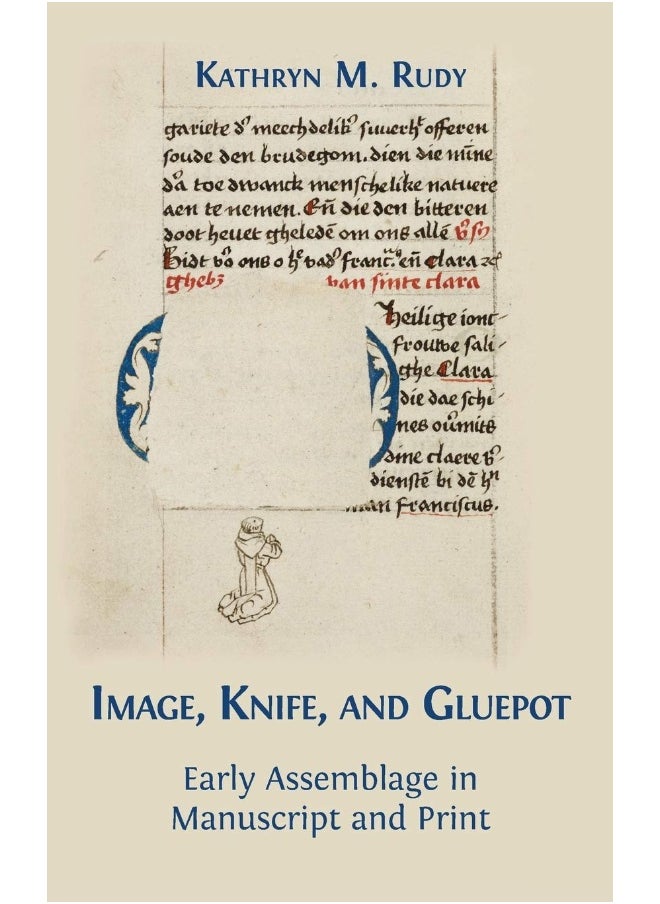 KATHRYN M. RUDY
gariete dʾ meechdelikʾ suuerhʾt offeren
soude den brudegom. dien die mīne
dʾa toe dwanck menschelike natuere
aen te nemen. Eñ die den bitteren
doot heuet gheledē om ons allē vʾsʾ
Bidt vʾo ons o hʾe vadʾ franc. eñ Clara
ghebʒ van sinte clara
Heilige ionc
frouwe sali
ghe Clara
die dae schi
nes oūmits
dine claere vʾ
dienstē bi dē hʾn
man franciscus.
IMAGE, KNIFE, AND GLUEPOT
Early Assemblage in
Manuscript and Print